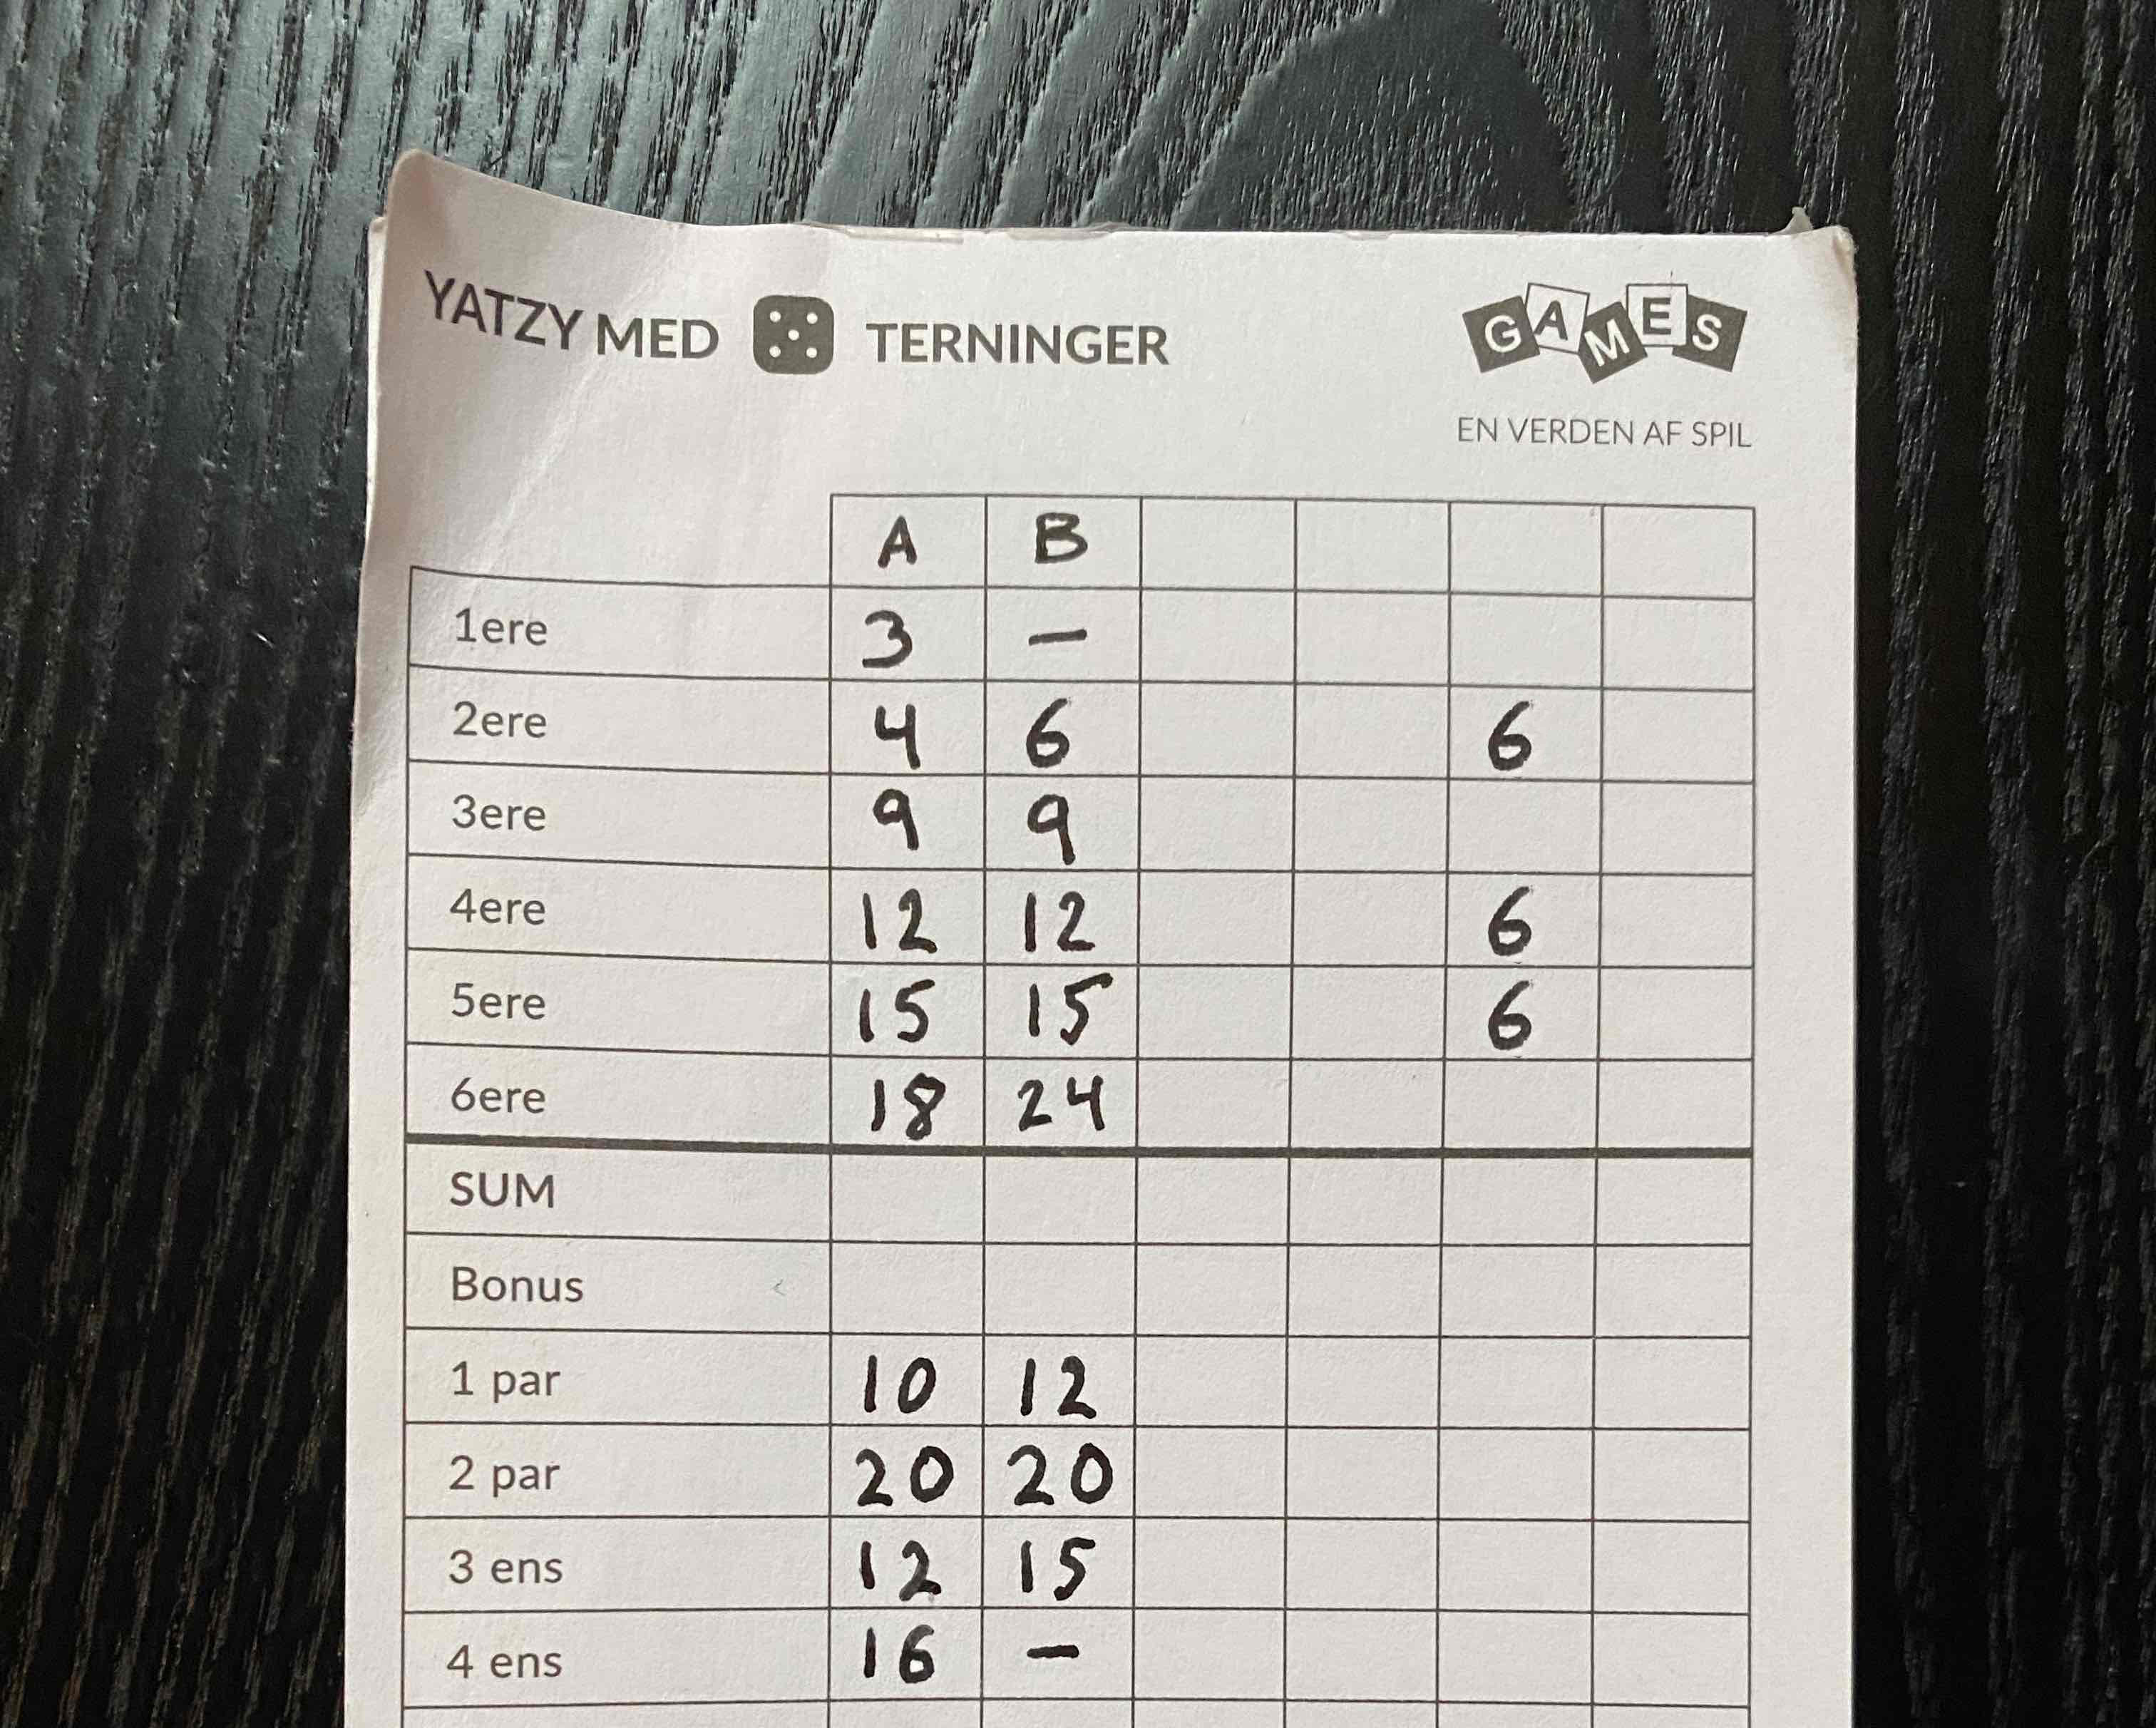 YATZY MED TERNINGER
GAMES
EN VERDEN AF SPIL
A B
1ere 3 –
2ere 4 6 6
3ere 9 9
4ere 12 12 6
5ere 15 15 6
6ere 18 24
SUM
Bonus
1 par 10 12
2 par 20 20
3 ens 12 15
4 ens 16 –